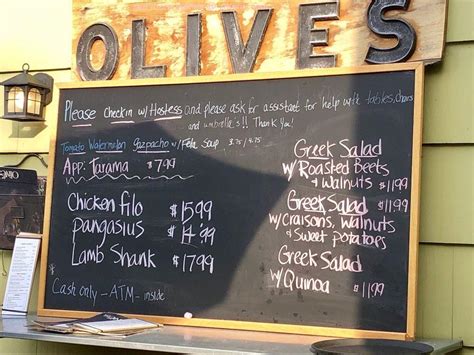 OLIVES
Please checkin w/ Hostess and please ask for assistant for help with tables, chairs
and umbrella's!! Thank you!
Tomato Watermelon gazpacho w/ Feta Soup 3.75 / 4.75
App: Tarama $7.99
Chicken filo $15.99
pangasius $14.99
Lamb Shank $17.99
Cash only - ATM - inside
Greek Salad
w/ Roasted Beets
& walnuts $11.99
Greek Salad
w/ Craisons, Walnuts
& Sweet potatoes $11.99
Greek Salad
w/ Quinoa $11.99